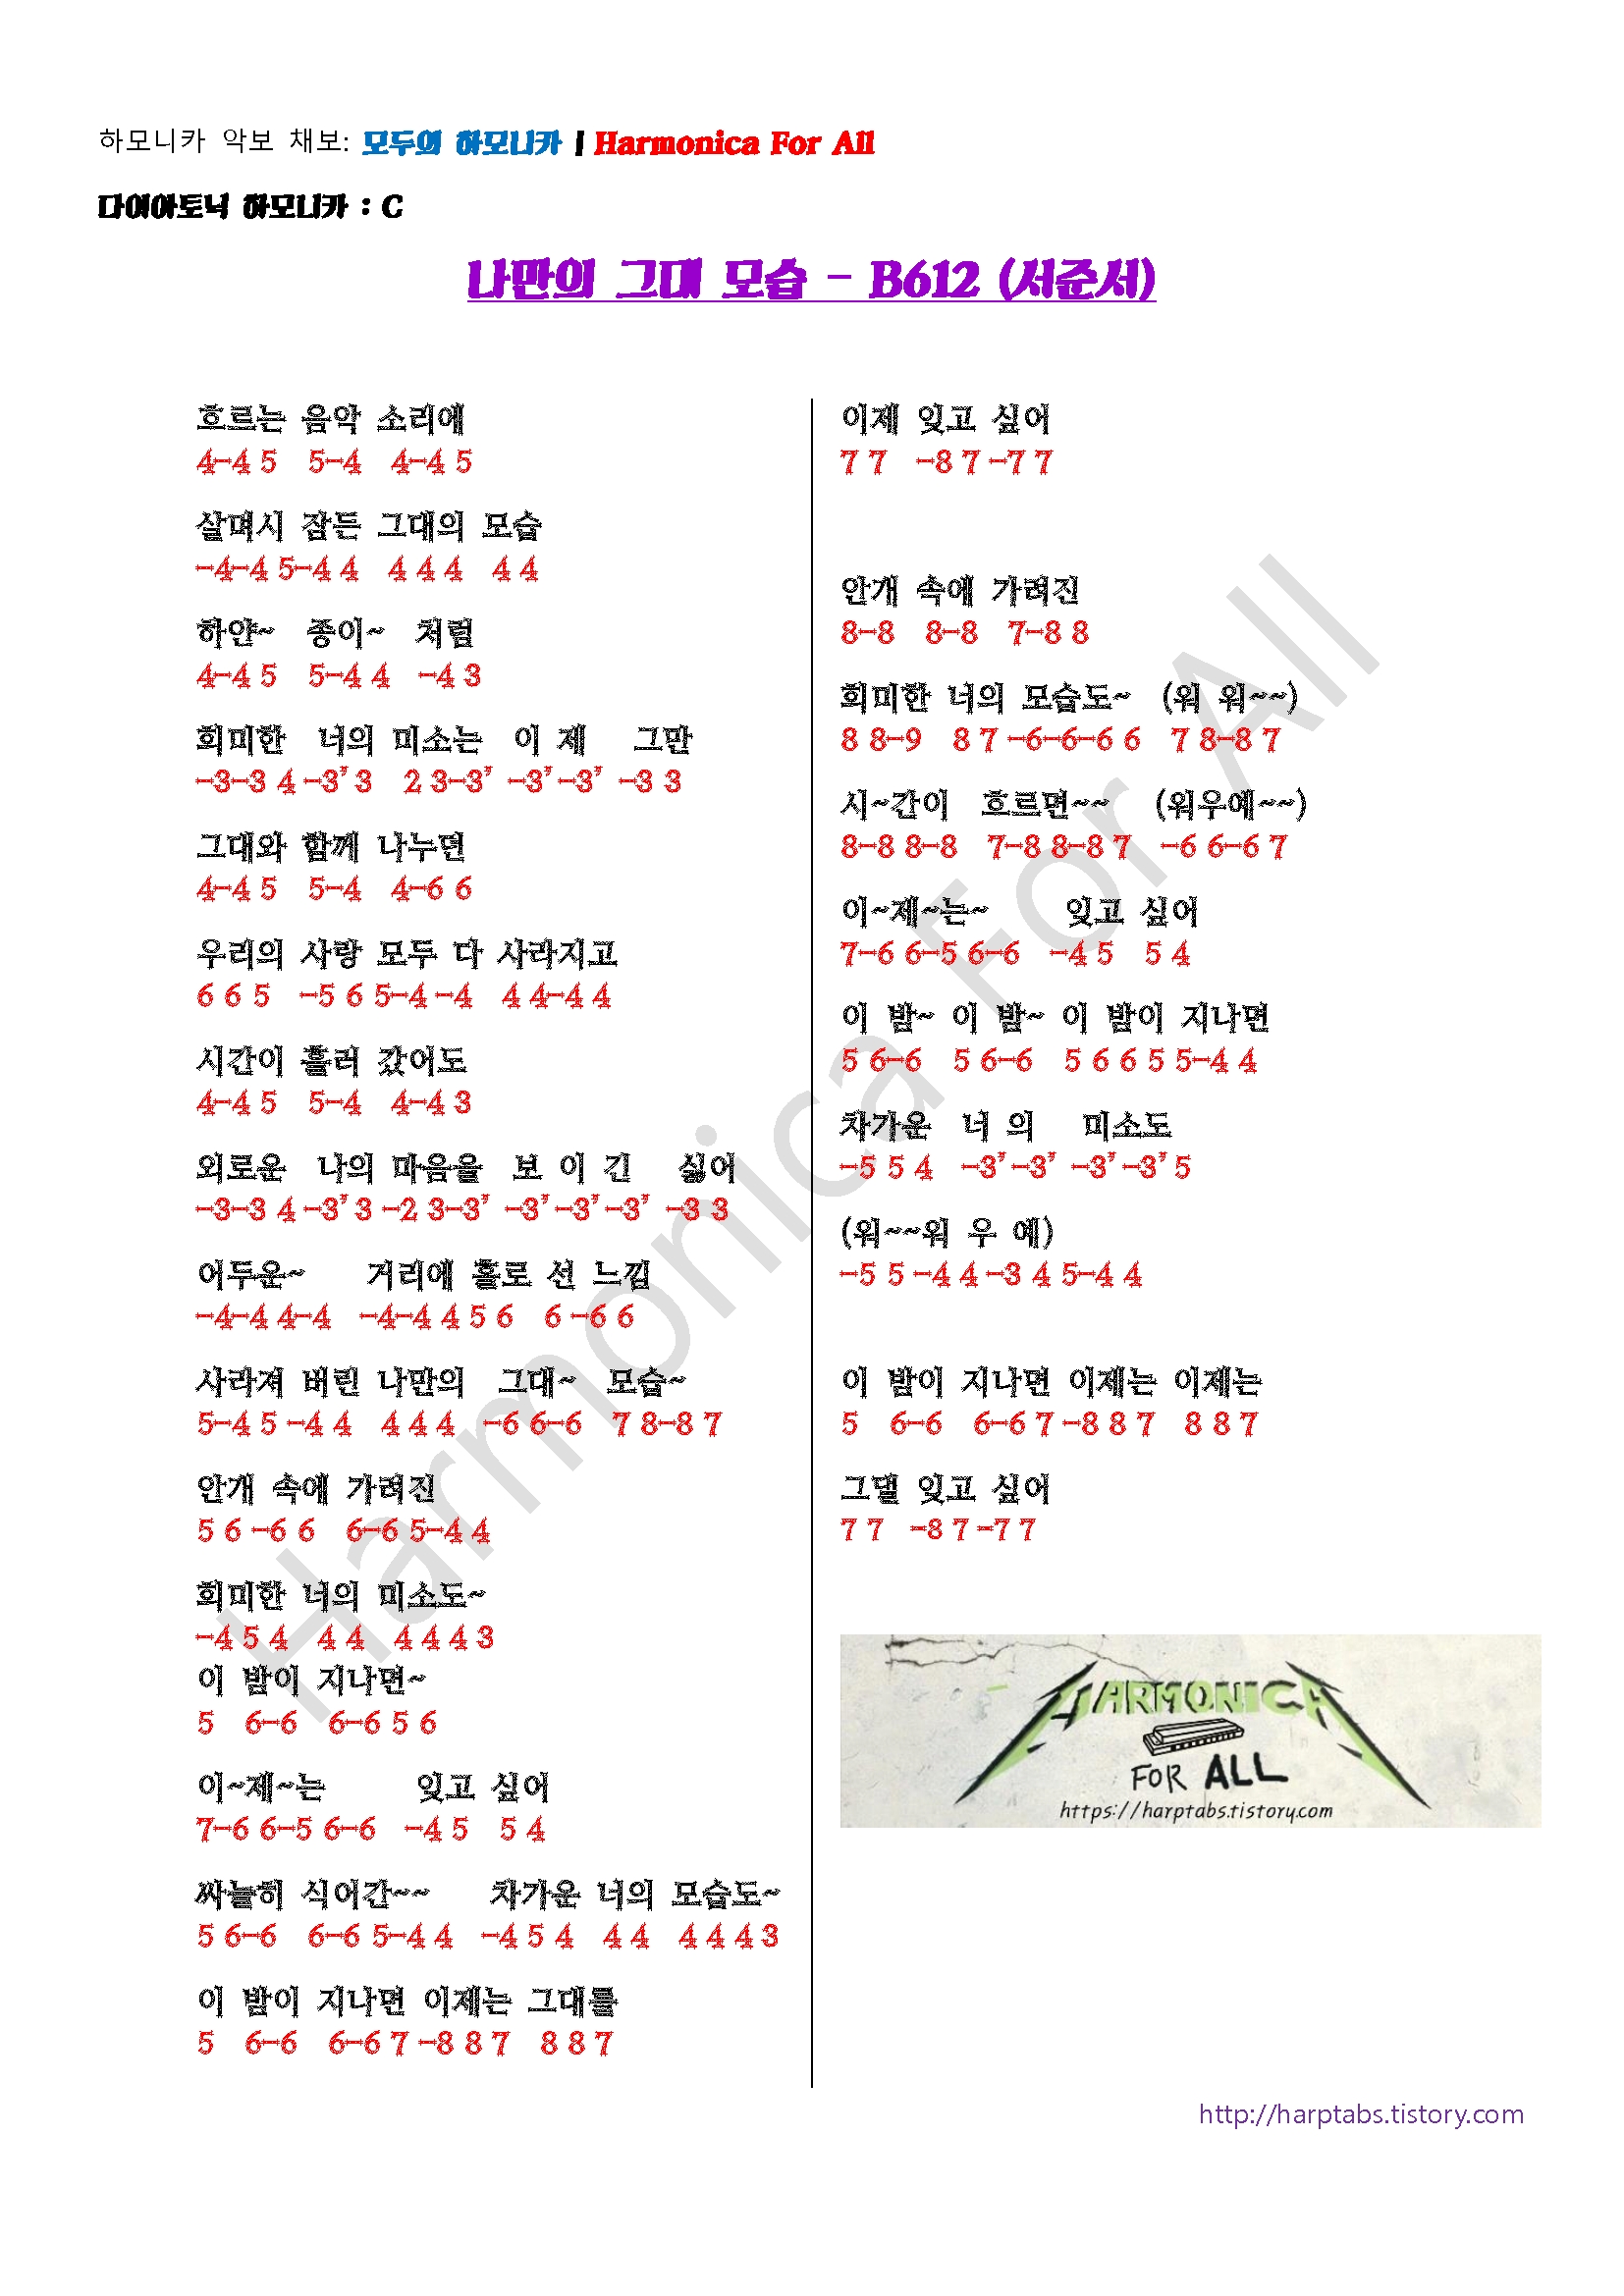 하모니카 악보 채보: 모두의 하모니카 | Harmonica For All
다이아토닉 하모니카 : C
나만의 그대 모습 - B612 (서준서)
흐르는 음악 소리에
4-4 5 5-4 4-4 5
살며시 잠든 그대의 모습
-4-4 5-4 4 4 4 4 4 4
하얀~ 종이~ 처럼
4-4 5 5-4 4 -4 3
희미한 너의 미소는 이 제 그만
-3-3 4 -3' 3 2 3-3' -3'-3' -3 3
그대와 함께 나누던
4-4 5 5-4 4-6 6
우리의 사랑 모두 다 사라지고
6 6 5 -5 6 5-4 -4 4 4-4 4
시간이 흘러 갔어도
4-4 5 5-4 4-4 3
외로운 나의 마음을 보 이 긴 싫어
-3-3 4 -3' 3 -2 3-3' -3'-3'-3' -3 3
어두운~ 거리에 홀로 선 느낌
-4-4 4-4 -4-4 4 5 6 6 -6 6
사라져 버린 나만의 그대~ 모습~
5-4 5 -4 4 4 4 4 -6 6-6 7 8-8 7
안개 속에 가려진
5 6 -6 6 6-6 5-4 4
희미한 너의 미소도~
-4 5 4 4 4 4 4 4 3
이 밤이 지나면~
5 6-6 6-6 5 6
이~제~는 잊고 싶어
7-6 6-5 6-6 -4 5 5 4
싸늘히 식어간~~ 차가운 너의 모습도~
5 6-6 6-6 5-4 4 -4 5 4 4 4 4 4 4 3
이 밤이 지나면 이제는 그대를
5 6-6 6-6 7 -8 8 7 8 8 7
이제 잊고 싶어
7 7 -8 7 -7 7
안개 속에 가려진
8-8 8-8 7-8 8
희미한 너의 모습도~ (워 워~~)
8 8-9 8 7 -6-6-6 6 7 8-8 7
시~간이 흐르면~~ (워우예~~)
8-8 8-8 7-8 8-8 7 -6 6-6 7
이~제~는~ 잊고 싶어
7-6 6-5 6-6 -4 5 5 4
이 밤~ 이 밤~ 이 밤이 지나면
5 6-6 5 6-6 5 6 6 5 5-4 4
차가운 너 의 미소도
-5 5 4 -3'-3' -3'-3' 5
(워~~워 우 예)
-5 5 -4 4 -3 4 5-4 4
이 밤이 지나면 이제는 이제는
5 6-6 6-6 7 -8 8 7 8 8 7
그댈 잊고 싶어
7 7 -8 7 -7 7
HARMONICA
FOR ALL
https://harptabs.tistory.com
http://harptabs.tistory.com
Harmonica For All